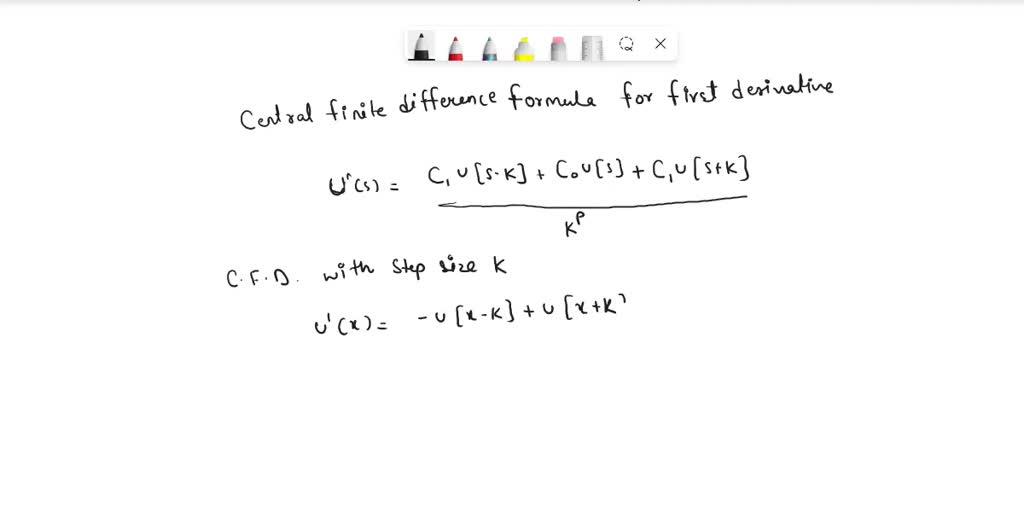 Central finite difference formula for first derivative
U'(s) = C₁U[s-K] + C₀U[s] + C₁U[s+K]
K^P
C.F.D. with step size K
U'(x) = -U[x-K] + U[x+K)